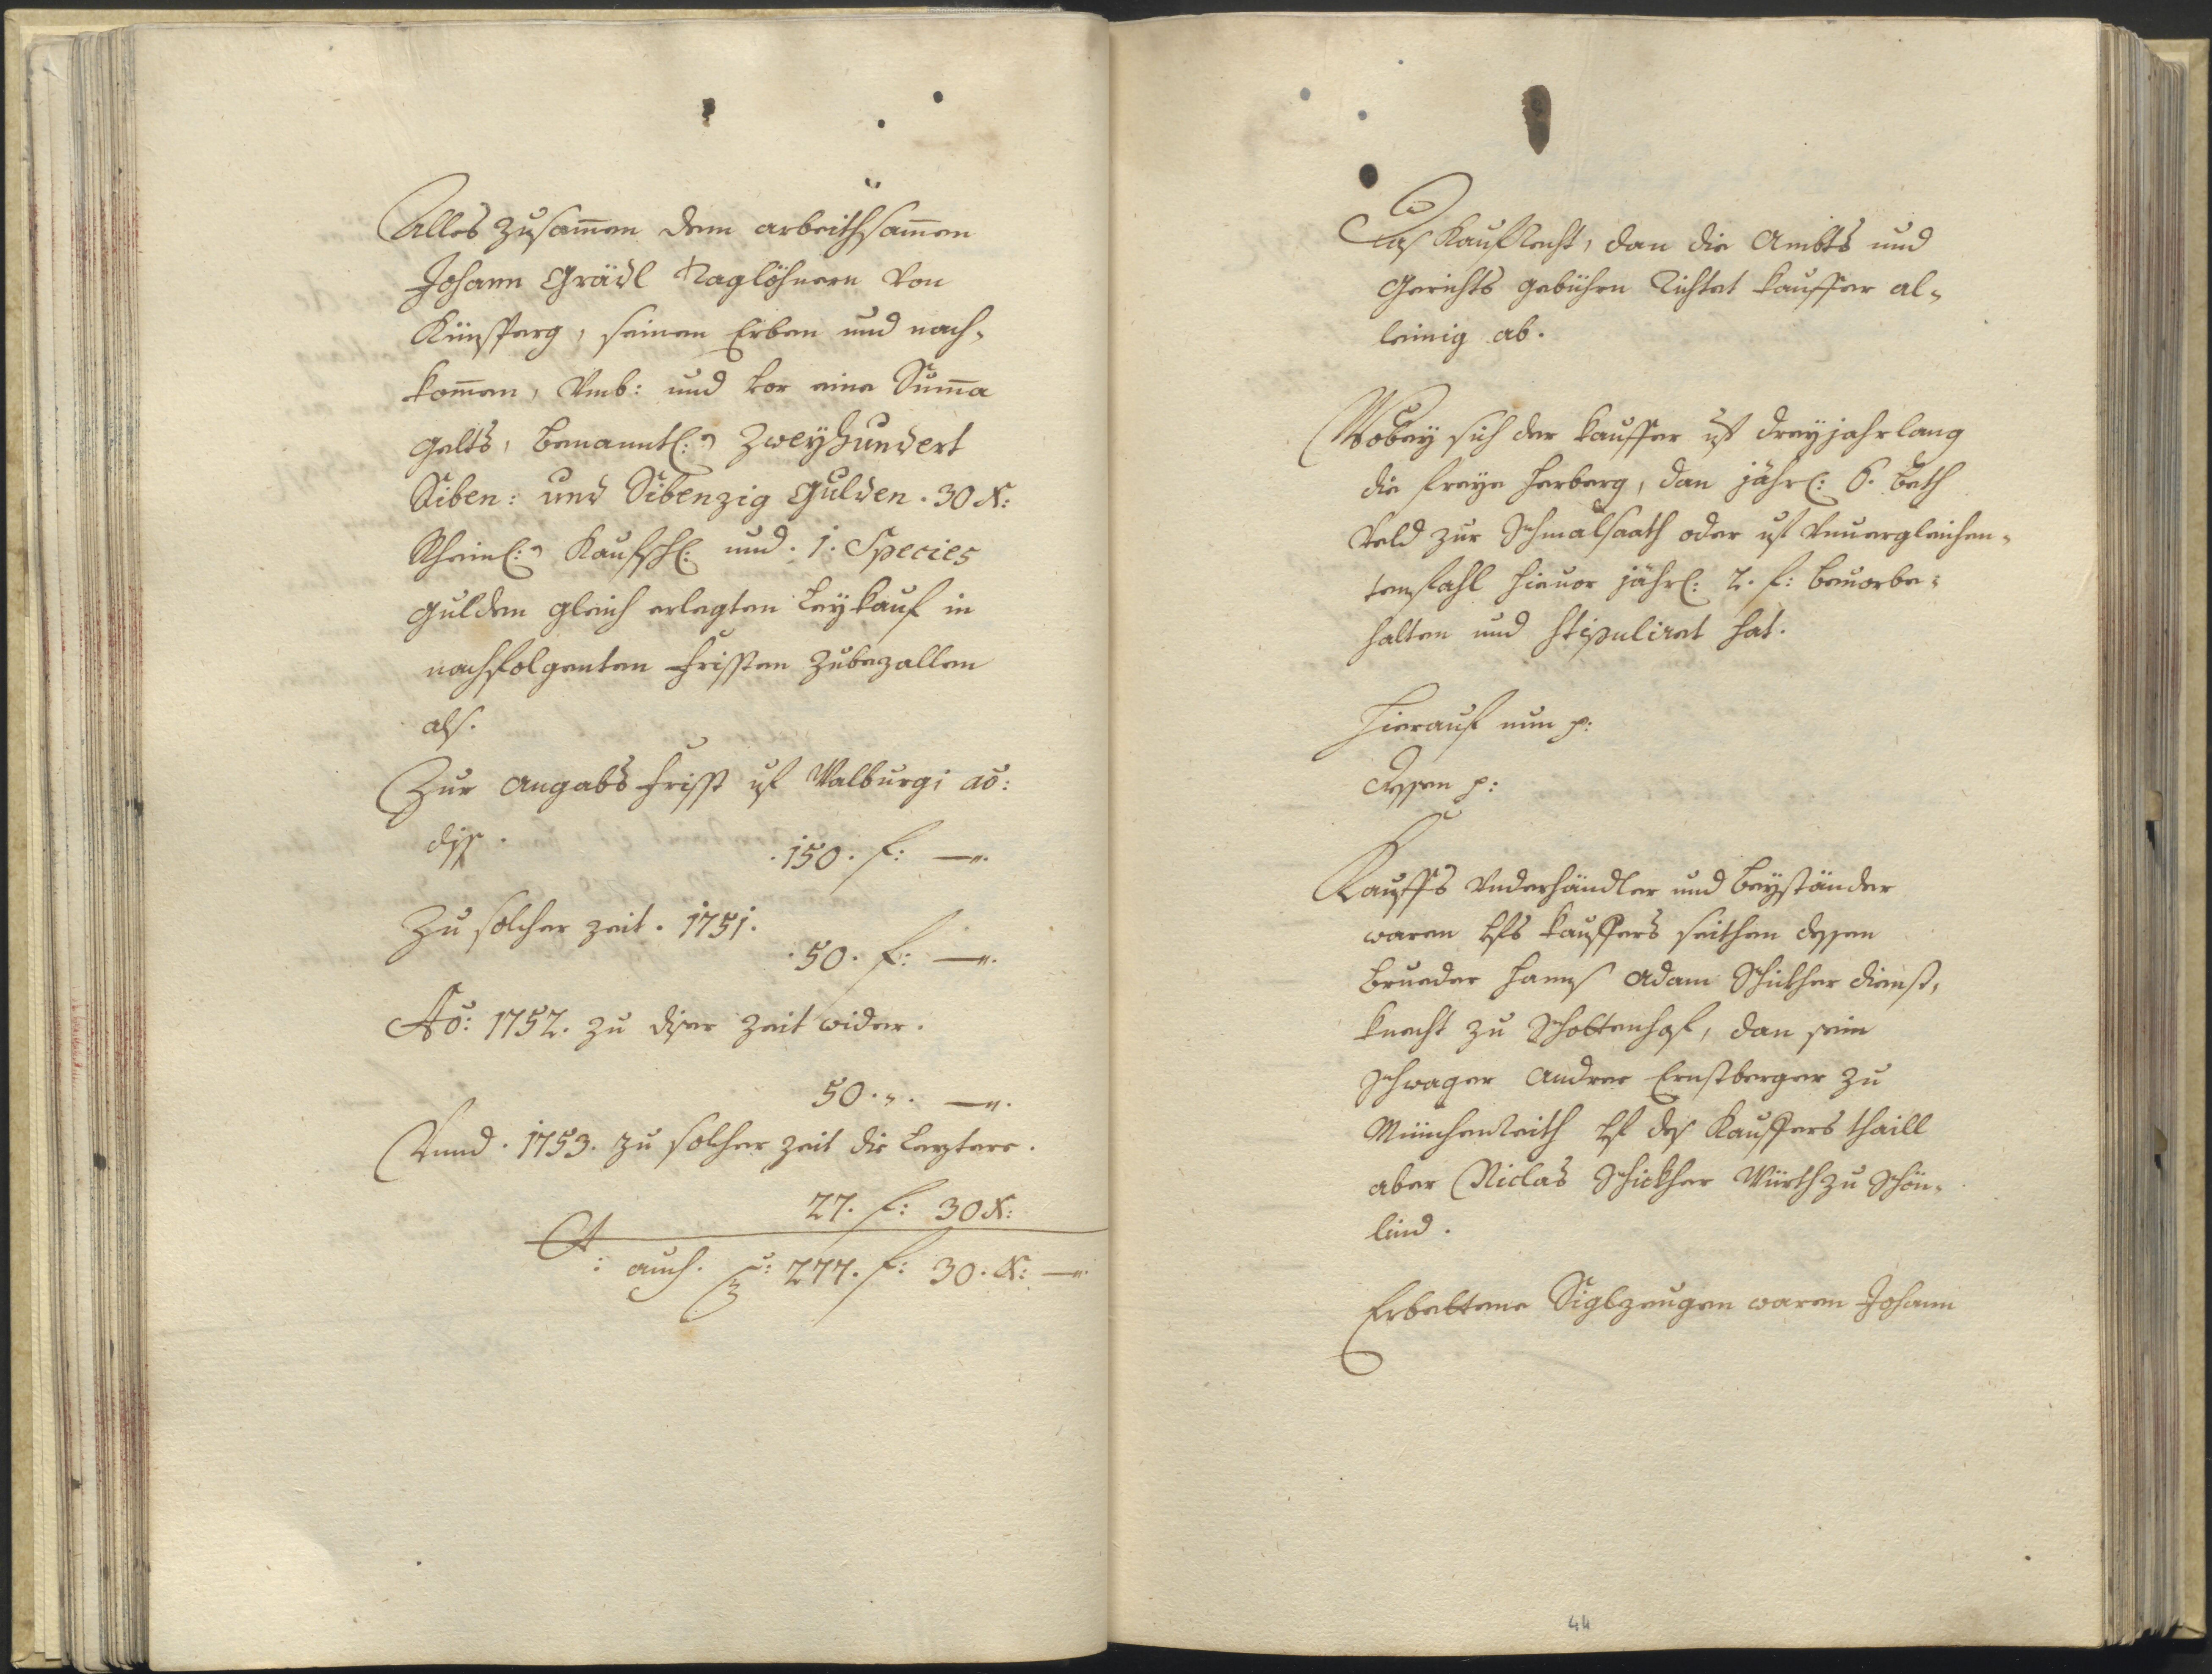 Alles zusam̄en dem arbeithsam̄en
Johann Grädl Taglöhnern von
Künsperg, seinen Erben und nach-
kom̄en, Umb: und vor eine Sum̄a
gelts, benanntl: Zweyhundert
Siben: und Sibenzig Gulden. 30 x:
Rheinl: Kaufschl: und. 1. Species
gulden gleich erlegten Leykauf in
nachfolgenten fristen zubezallen
als.
Zur angabs frist uf Walburgi ao:
diss.
150. f: —"
Zu solcher zeit. 1751.
50. f: —"
Ao: 1752. zu diser zeit wider.
50. ". —"
Vnnd. 1753. zu solcher zeit die leztere.
27. f: 30 x:
: auch. 277. f: 30. x: —"
Das Kaufrecht, dan die Ambts und
Gerichts gebühren Richtet kauffer al-
leinig ab.
Wobey sich der kauffer uf drey jahr lang
die freye herberg, dan jährl: 6. beth
veld zur Schmalsaath oder uf vnuergleichen-
tenfahl hieuor jährl: 2. f: beuorbe-
halten und stipuliret hat.
Hierauf nun p:
dessen p:
Kauffs vnderhändler und beyständer
waren vfs kauffers seithen dessen
brueder Hanns Adam Schickher dienst-
knecht zu Schottenhof, dan sein
schwager Andree Ernstberger zu
Münchenreith vf des Kauffers thaill
aber Niclas Schickher Würth zu Schön-
lind.
Erbettene Siglzeugen waren Johann
44